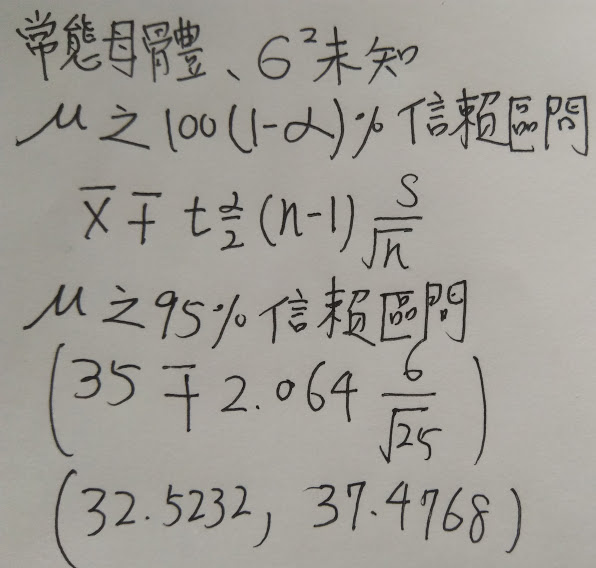 常態母體、σ²未知
μ之100(1-α)%信賴區間
x̄ ∓ t α/2 (n-1) S/√n
μ之95%信賴區間
(35 ∓ 2.064 6/√25)
(32.5232, 37.4768)